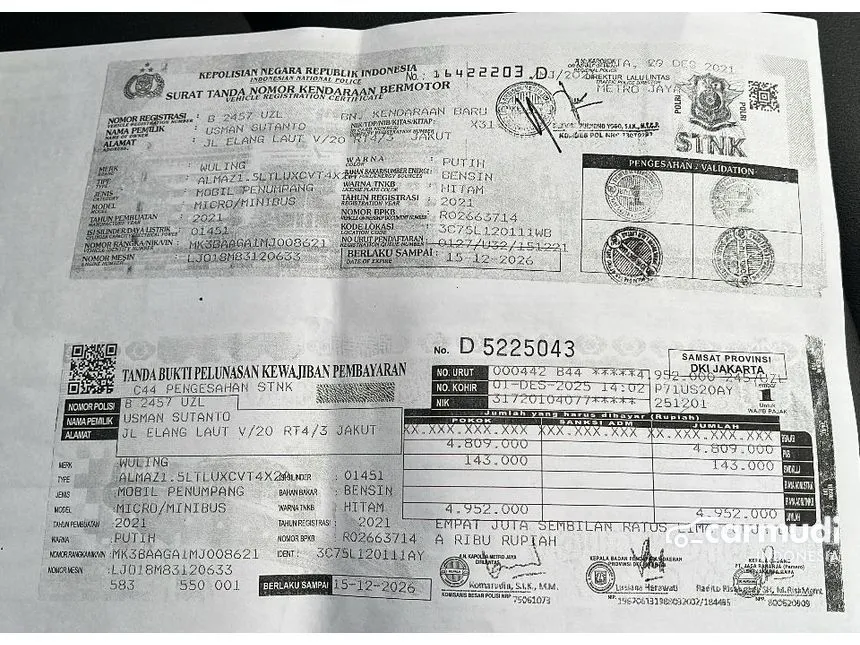 KEPOLISIAN NEGARA REPUBLIK INDONESIA
INDONESIAN NATIONAL POLICE
SURAT TANDA NOMOR KENDARAAN BERMOTOR
VEHICLE REGISTRATION CERTIFICATE
No. : 16422203 .D
29 DES 2021
DIREKTUR LALU LINTAS
METRO JAYA
POLRI
POLRI
STNK
NOMOR REGISTRASI : B 2457 UZL
BN. KENDARAAN BARU
NAMA PEMILIK : USMAN SUTANTO
NIK/TDP/NIB/KITAS/KITAP
ALAMAT : JL ELANG LAUT V/20 RT4/3 JAKUT
MERK : WULING
TIPE : ALMAZ1.5LTLUXCVT4X2
JENIS : MOBIL PENUMPANG
MODEL : MICRO/MINIBUS
TAHUN PEMBUATAN : 2021
ISI SILINDER/DAYA LISTRIK : 01451
NOMOR RANGKA/NIK/VIN : MK3BAAGA1MJ008621
NOMOR MESIN : LJ018M83120633
WARNA : PUTIH
BAHAN BAKAR/SUMBER ENERGI : BENSIN
WARNA TNKB : HITAM
TAHUN REGISTRASI : 2021
NOMOR BPKB : R02663714
KODE LOKASI : 3C75L120111WB
NO URUT PENDAFTARAN : 0127/U32/151221
BERLAKU SAMPAI : 15-12-2026
DATE OF EXPIRE
PENGESAHAN / VALIDATION
TANDA BUKTI PELUNASAN KEWAJIBAN PEMBAYARAN
No. D 5225043
SAMSAT PROVINSI
DKI JAKARTA
C44 PENGESAHAN STNK
NO. URUT 000442 B44 *****4
NO. KOHIR 01-DES-2025 14:02 P71US20AY
NIK 31720104077***** 251201
Untuk
WAJIB PAJAK
NOMOR POLISI B 2457 UZL
NAMA PEMILIK USMAN SUTANTO
ALAMAT JL ELANG LAUT V/20 RT4/3 JAKUT
Jumlah yang harus dibayar (Rupiah)
POKOK SANKSI ADM JUMLAH
XX.XXX.XXX XX.XXX.XXX XX.XXX.XXX
4.809.000 4.809.000
143.000 143.000
4.952.000 4.952.000
EMPAT JUTA SEMBILAN RATUS
A RIBU RUPIAH
MERK : WULING
TYPE : ALMAZ1.5LTLUXCVT4X2
JENIS : MOBIL PENUMPANG
MODEL : MICRO/MINIBUS
TAHUN PEMBUATAN : 2021
WARNA : PUTIH
NOMOR RANGKA/NIK/VIN : MK3BAAGA1MJ008621
NOMOR MESIN : LJ018M83120633
583 550 001
: 01451
BAHAN BAKAR : BENSIN
WARNA TNKB : HITAM
TAHUN REGISTRASI : 2021
NOMOR BPKB : R02663714
IDENT : 3C75L120111AY
BERLAKU SAMPAI 15-12-2026
A.N. KAPOLDA METRO JAYA
DIRLANTAS
Komarudin, S.I.K., M.M.
KOMISARIS BESAR POLISI NRP 75061073
Lusiana Herawati
carmudi
INDONESIA